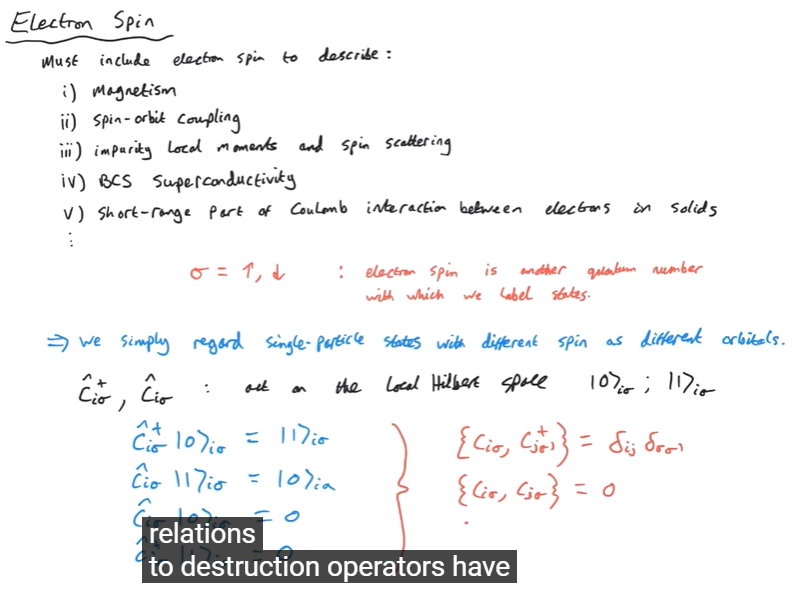 Electron Spin
Must include electron spin to describe:
i) Magnetism
ii) Spin-orbit coupling
iii) impurity local moments and spin scattering
iv) BCS Superconductivity
v) Short-range part of Coulomb interaction between electrons in solids
⋮
σ = ↑, ↓ : electron spin is another quantum number
with which we label states.
⇒ we simply regard single-particle states with different spin as different orbitals.
ĉ⁺iσ, ĉiσ : act on the local Hilbert space |0⟩iσ ; |1⟩iσ
ĉ⁺iσ |0⟩iσ = |1⟩iσ
{ciσ, c⁺jσ'} = δij δσσ'
ĉiσ |1⟩iσ = |0⟩iσ
{ciσ, cjσ} = 0
ĉiσ |0⟩iσ = 0
relations
to destruction operators have